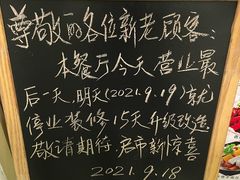 尊敬的各位新老顾客:
本餐厅今天营业最
后一天,明天(2021.9.19)京就
停业装修15天升级改造
敬请期待.启市新惊喜
2021.9.18